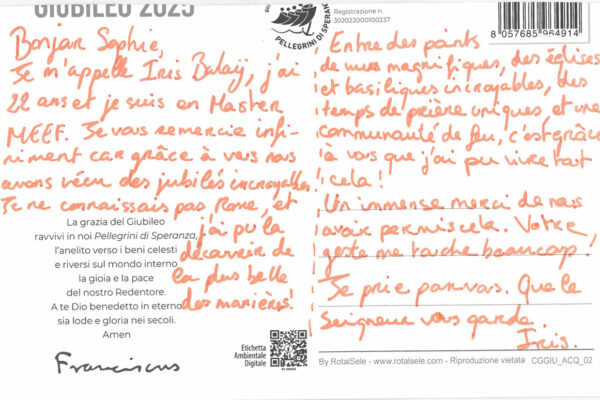 GIUBILEO 2025
Bonjour Sophie,
Je m'appelle Iris Balaÿ, j'ai
22 ans et je suis en Master
MEEF. Je vous remercie infi-
niment car grâce à vous nous
avons vécu des jubilés incroyables
Je ne connaissais pas Rome, et
j'ai pu la
découvrir de
la plus belle
des manières!
La grazia del Giubileo
ravvivi in noi Pellegrini di Speranza,
l'anelito verso i beni celesti
e riversi sul mondo intero
la gioia e la pace
del nostro Redentore.
A te Dio benedetto in eterno
sia lode e gloria nei secoli.
Amen
Franciscus
PELLEGRINI DI SPERAN
Registrazione n.
302022000100237
8 057685 964914
Entre des points
de vues magnifiques, des églises
et basiliques incroyables, des
temps de prière uniques et une
communauté de feu, c'est grâce
à vous que j'ai pu vivre tout
cela!
Un immense merci de nous
avoir permis cela. Votre
geste me touche beaucoup!
Je prie pour vous. Que le
Seigneur vous garde.
Iris.
Etichetta
Ambientale
Digitale
By RotalSele - www.rotalsele.com - Riproduzione vietata CGGIU_ACQ_02